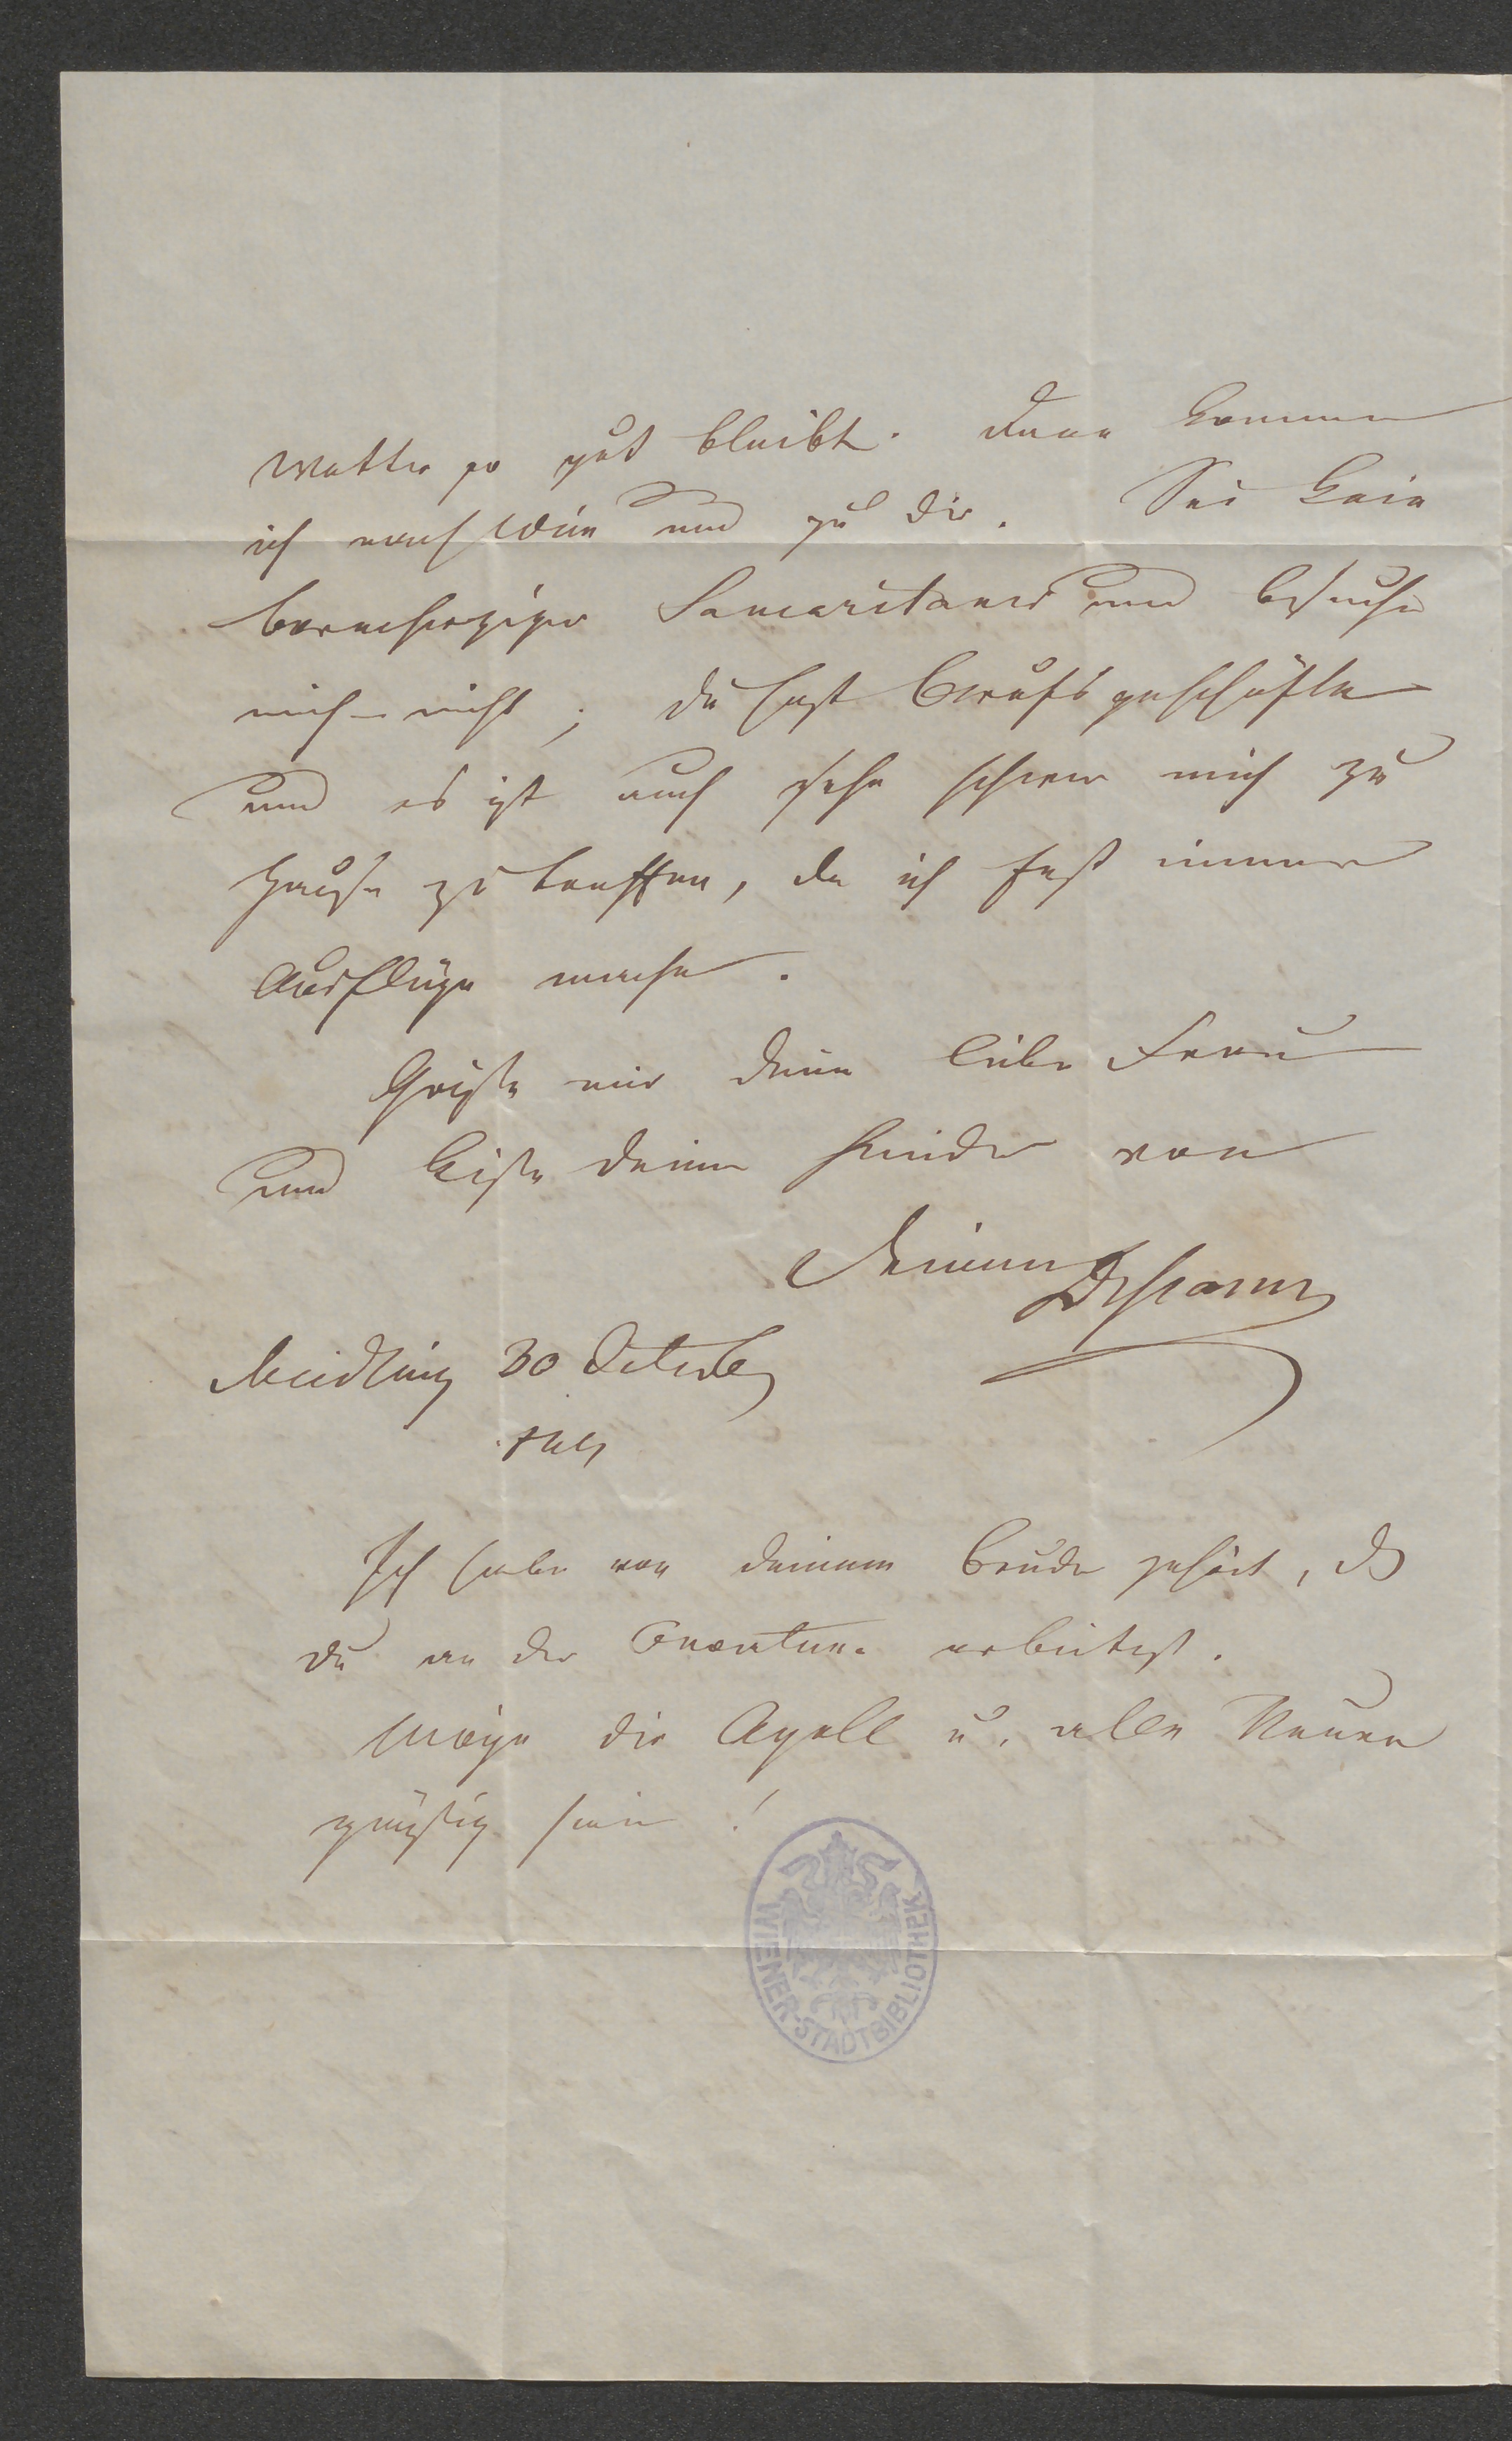 Wetter so gut bleibt. Dann komme
ich nach Wien und zu dir. Sei kein
barmherziger Samaritaner und besuche
mich nicht; du hast Berufsgeschäfte
und es ist auch sehr schwer mich zu
Hause zu treffen, da ich fast immer
Ausflüge mache.
Grüße mir deine liebe Frau
und küße deine Kinder von
Deinem
Meidling 30 October
Ich habe von deinem Bruder gehört, dß
du an der arbeitest.
Möge dir Apoll u. alle Neuen
günstig sein!
WIENER-STADTBIBLIOTHEK